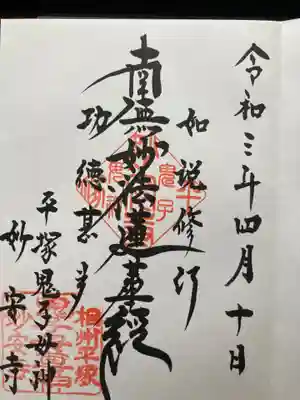 令和三年四月十日
如説修行
南無妙法蓮華経
功徳甚多
平塚鬼子母神
妙安寺
相州平塚